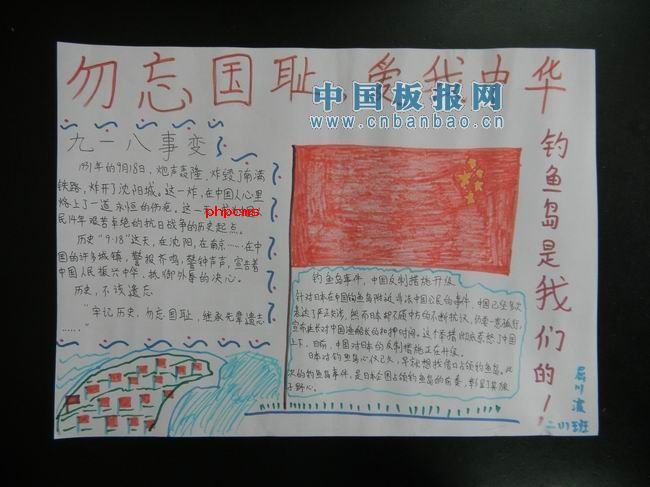 勿忘国耻,爱我中华
中国板报网
www.cnbanbao.cn
九一八事变
1931年的9月18日，炮声轰隆，炸毁了南满
铁路，炸开了沈阳城。这一炸，在中国人心里
烙上了一道永恒的伤疤。这一
phpcms
民14年艰苦卓绝的抗日战争的历史起点。
历史"9·18"这天，在沈阳，在南京……在中
国的许多城镇，警报齐鸣，警钟声声，宣告着
中国人民振兴中华、抵御外辱的决心。
历史，不该遗忘
"牢记历史，勿忘国耻，继承先辈遗志
……"
钓鱼岛事件，中国反制措施升级
针对日本在中国钓鱼岛附近非法中国公民的事件，中国已多次
表达了严正交涉，然而日本却不顾中方的不断抗议，仍要一意孤行，
宣布延长对中国渔船船长的扣押时间。这个举措彻底惹怒了中国
上下，目前，中国对日本的反制措施正在升级。
日本对钓鱼岛心仪已久，早就想找借口占领钓鱼岛。此
次的钓鱼岛事件，是日本企图占领钓鱼岛的前奏，彰显了其狼
子野心。
钓鱼岛是我们的!
二(1)班